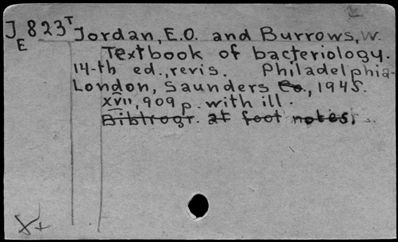 J 823T
E
Jordan, E.O. and Burrows, W.
Textbook of bacteriology.
14-th ed., revis. Philadelphia-
London, Saunders Co., 1945.
XVII, 909 p. with ill.
Bibliogr. at foot notes.